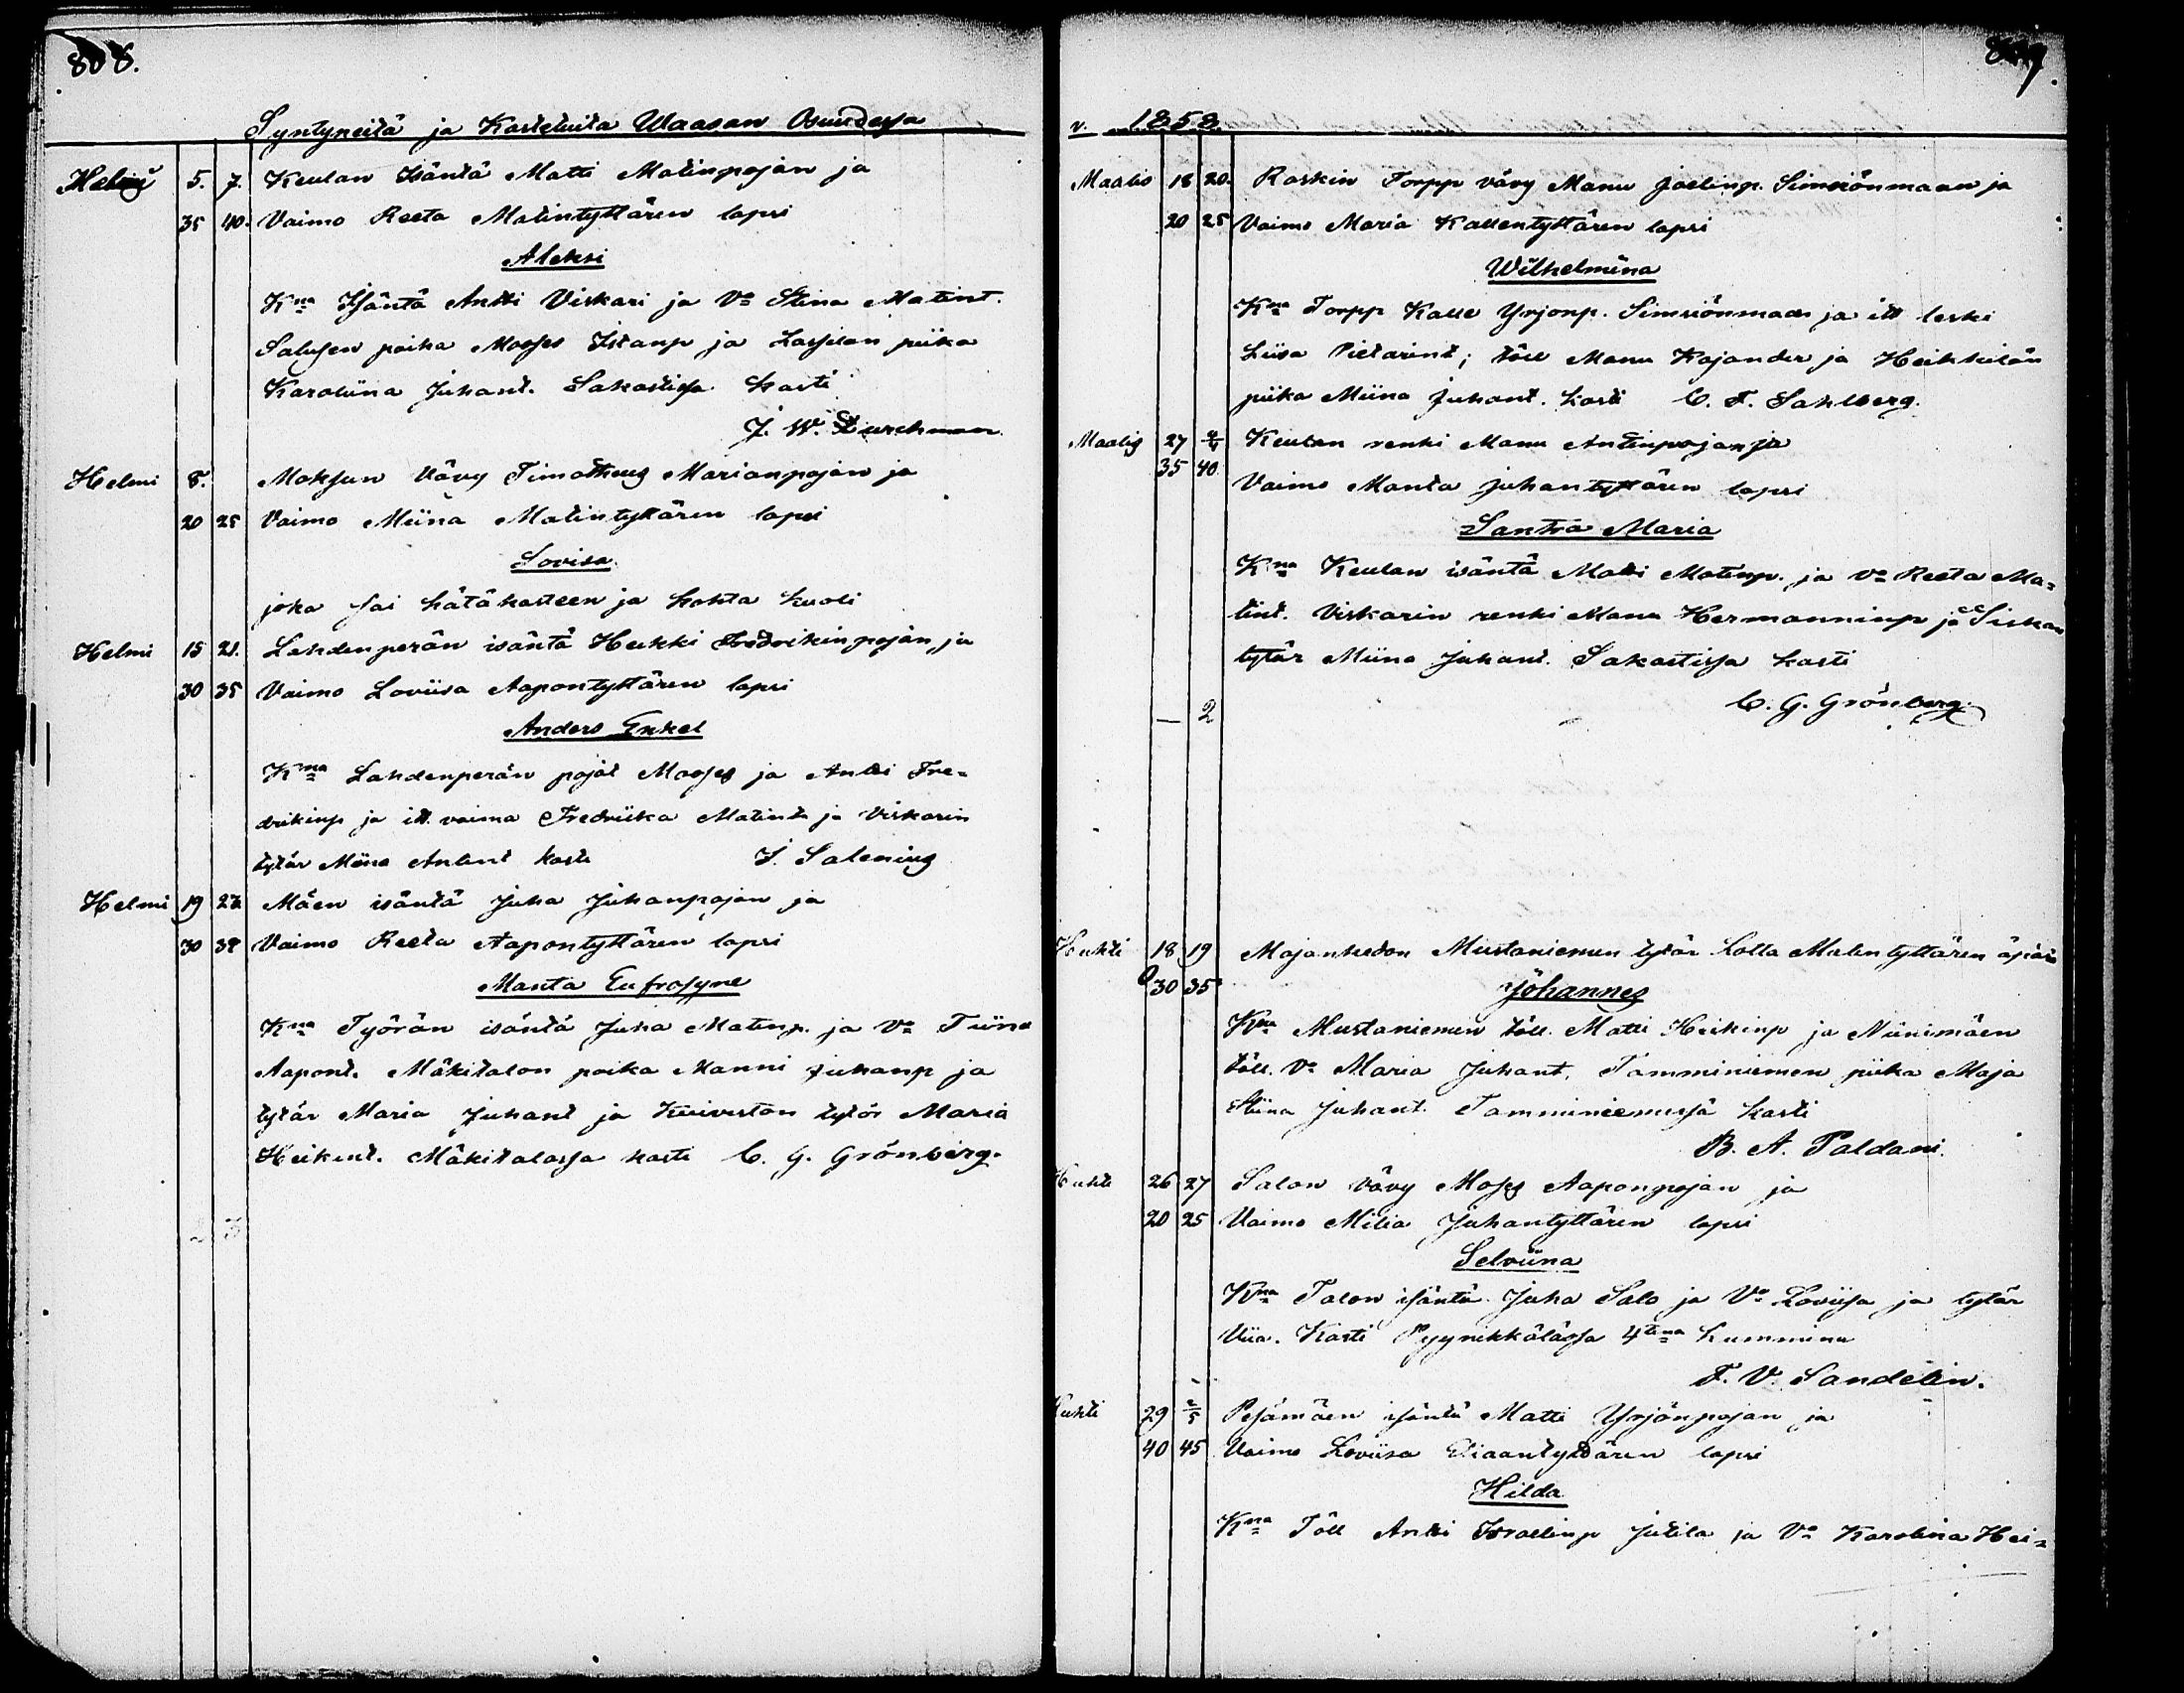 808.
Syntyneitä ja Kastetuita Waasan Osuudessa
Helmi 5. 7. Keulan Isäntä Matti Matinpojan ja
35 40. Vaimo Reeta Matintyttären lapsi
Aleksi
Kna Isäntä Antti Viskari ja Vo Stina Matint.
poika Mooses ja piika
Karoliina Juhant. Sakastissa kasti
J. W. Durchman
Helmi 8. Moksun Vävy Timotheus Marianpojan ja
20 25 Vaimo Miina Matintyttären lapsi
Lovisa
joka sai hätäkasteen ja kohta kuoli
Helmi 15 21. Lahdenperän isäntä Heikki Fredrikinpojan ja
30 35 Vaimo Loviisa Aapontyttären lapsi
Anders Enkel
Kna Lahdenperän pojat Mooses ja Antti Fre-
drikinp ja itt. vaimo Fredriika Matint ja Viskarin
tytär Miina Antint kasti J. Salenius
Helmi 19 27. Mäen isäntä Juha Juhanpojan ja
30 Vaimo Reeta Aapontyttären lapsi
Manta Eufrosyne
Kna Työrän isäntä Juha Matinp. ja Vo Tiina
Aapont. Mäkitalon poika Manni Juhanp ja
tytär Maria Juhant ja tytär Maria
Heikint. Mäkitalossa kasti C. G. Grönberg.
3
v. 1858.
Maalis 18 20. Raskin Torpp vävy Manu Joelinp. Simsiönmaan ja
20 25 Vaimo Maria Kallentyttären lapsi
Wilhelmina
Kna Torpp Kalle Yrjönp. Simsiönmaa ja itt leski
Liisa Pietarint; töll Manu Kajander ja Heikkilän
piika Miina Juhant. kasti C. F. Sahlberg.
Maalis 27 4/4 Keulan renki Manu Antinpojan ja
35 40. Vaimo Manta Juhantyttären lapsi
Santra Maria
Kna Keulan isäntä Matti Matinp. ja vo Reeta Ma-
tint. Viskarin renki Manu Hermanninp ja
tytär Miina Juhant. Sakastissa kasti
C. G. Grönberg.
— 2
Huhti 18 19 Majanhedon Mustaniemen tytär Lotta Matintyttären äpärä
30 35 Johannes
Kna Mustaniemen töll. Matti Heikinp ja Niinimäen
töll. Vo Maria Juhant. Tamminiemen piika Maja
Stiina Juhant. Tamminiemessä kasti
B. A. Paldani.
Huhti 26 27 Salon vävy Moses Aaponpojan ja
20 25 Vaimo Milia Juhantyttären lapsi
Selviina
Kna Talon isäntä Juha Salo ja Vo Loviisa ja tytär
Viia. Kasti Pyynikkälässä 4tenä kummina
F. V. Sandelin.
Huhti 29 2/5 Pesämäen isäntä Matti Yrjönpojan ja
40 45 Vaimo Loviisa Eliaantyttären lapsi
Hilda
Kna Töll Antti Israelinp Jutila ja Vo Karolina Hei-